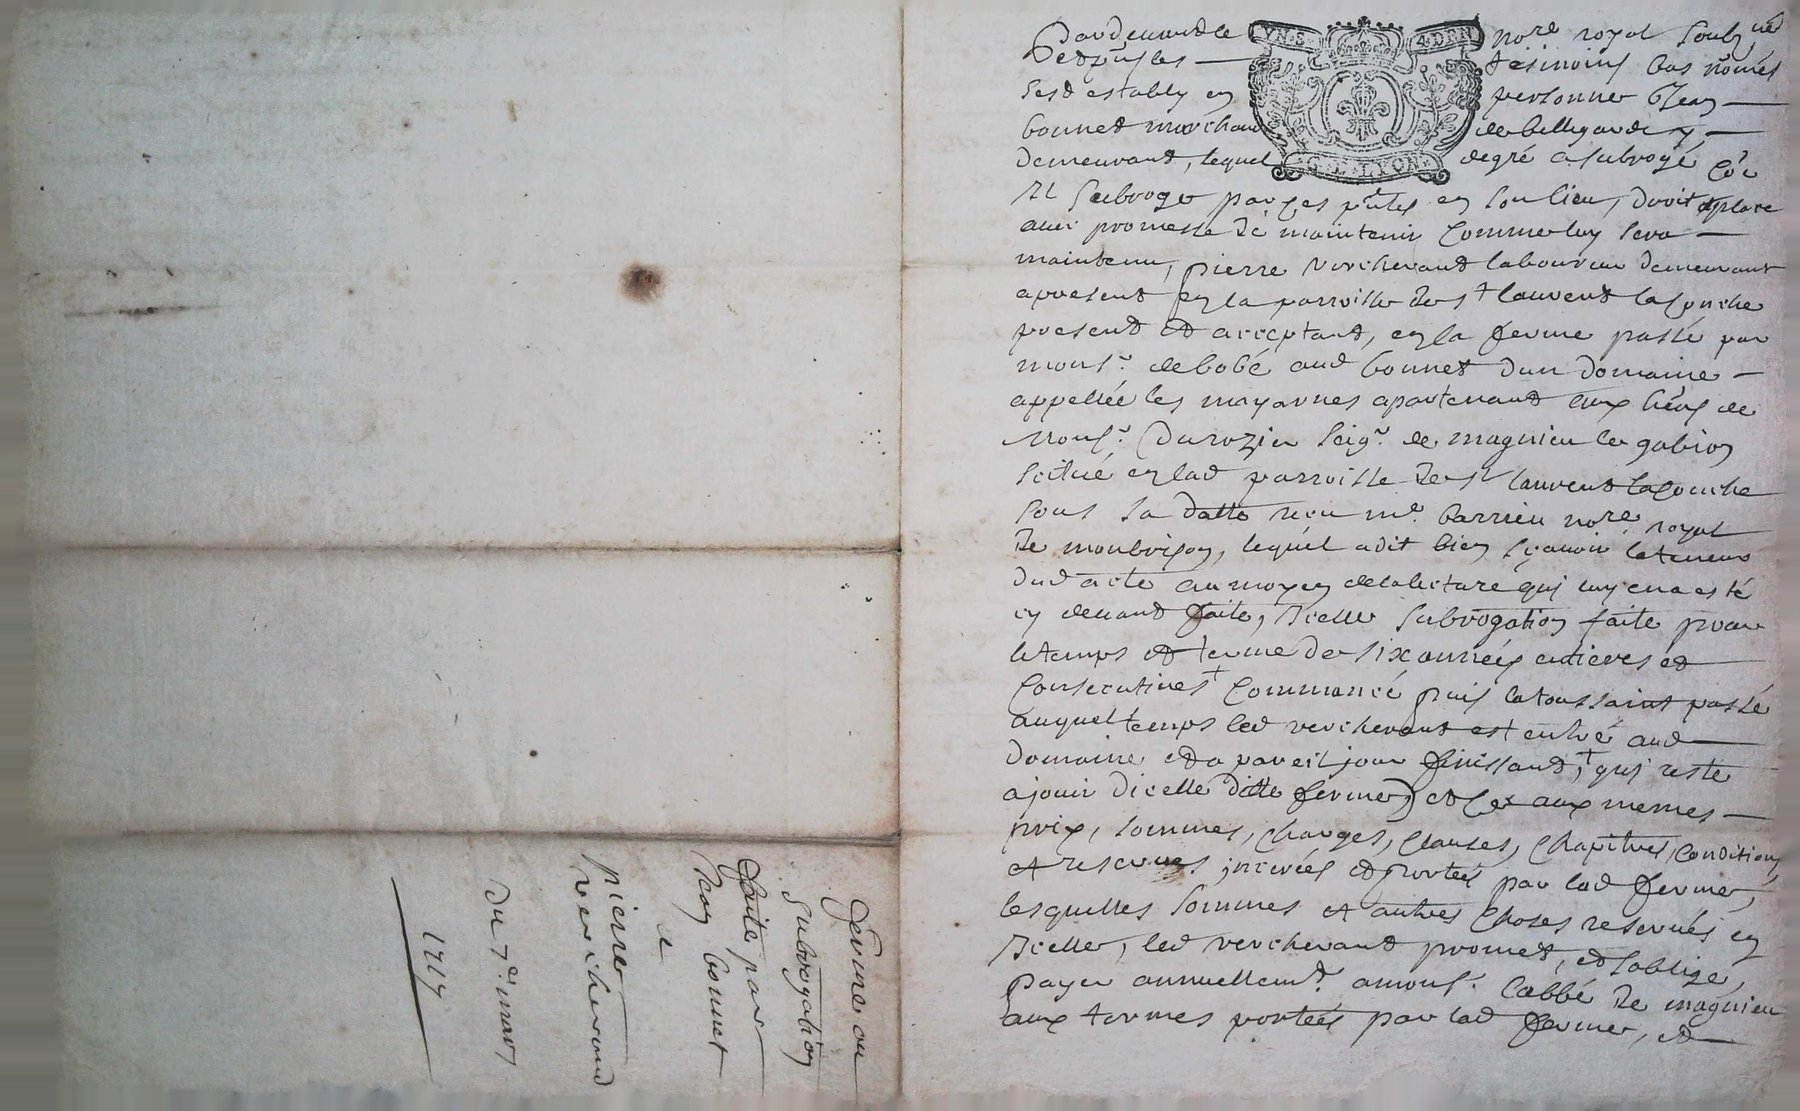 Pardevant le nore royal soubsne
Et presents les tesmoins bas només
s'est estably en personne Jean
bonnet marchand de bellegarde y
demeurant, lequel de gré a subrogé co^e
Il subroge par ces pntes en son lieu, droit et place
avec promesse de maintenir comme luy sera
maintenu, pierre vercherand laboureur demeurant
apresent en la parroisse de st laurent la conche
present et acceptant, en la ferme passé par
mons.r de bobé aud bonnet dun domaine
appellée les mayarnes apartenant aux hérs de
Mons.r Durozier seig.r de magnieu le gabion
scitué en lad parroisse de st laurent la conche
sous sa datte receu me. barrieu nore royal
De monbrison, lequel a dit bien sçavoir la teneur
dud acte au moyen de la lecture qui luy en a esté
cy devant faite, Icelle subrogation faite pour
le temps et terme de six années entieres et
consecutives + commancé puis la toussaint passé
auquel temps led vercherand est entré aud
Domaine et a pareil jour finissant, + qui reste
a jouir dicelle ditte ferme) et ce aux memes
prix, sommes, charges, clauses, chapitres, conditions
et reserves, incerées et portées par lad ferme,
lesquelles sommes et autres choses reservées en
Icelle, led vercherand promet, et soblige,
payer annuellemt. a mons.r labbé De magnieu
aux termes portées par lad ferme, et
YN.S. 4.DEN
G.L.LYON
ferme ou
subrogation
faite par
Jean bonnet
a
pierre
vercherand
Du 7e. mars
1717